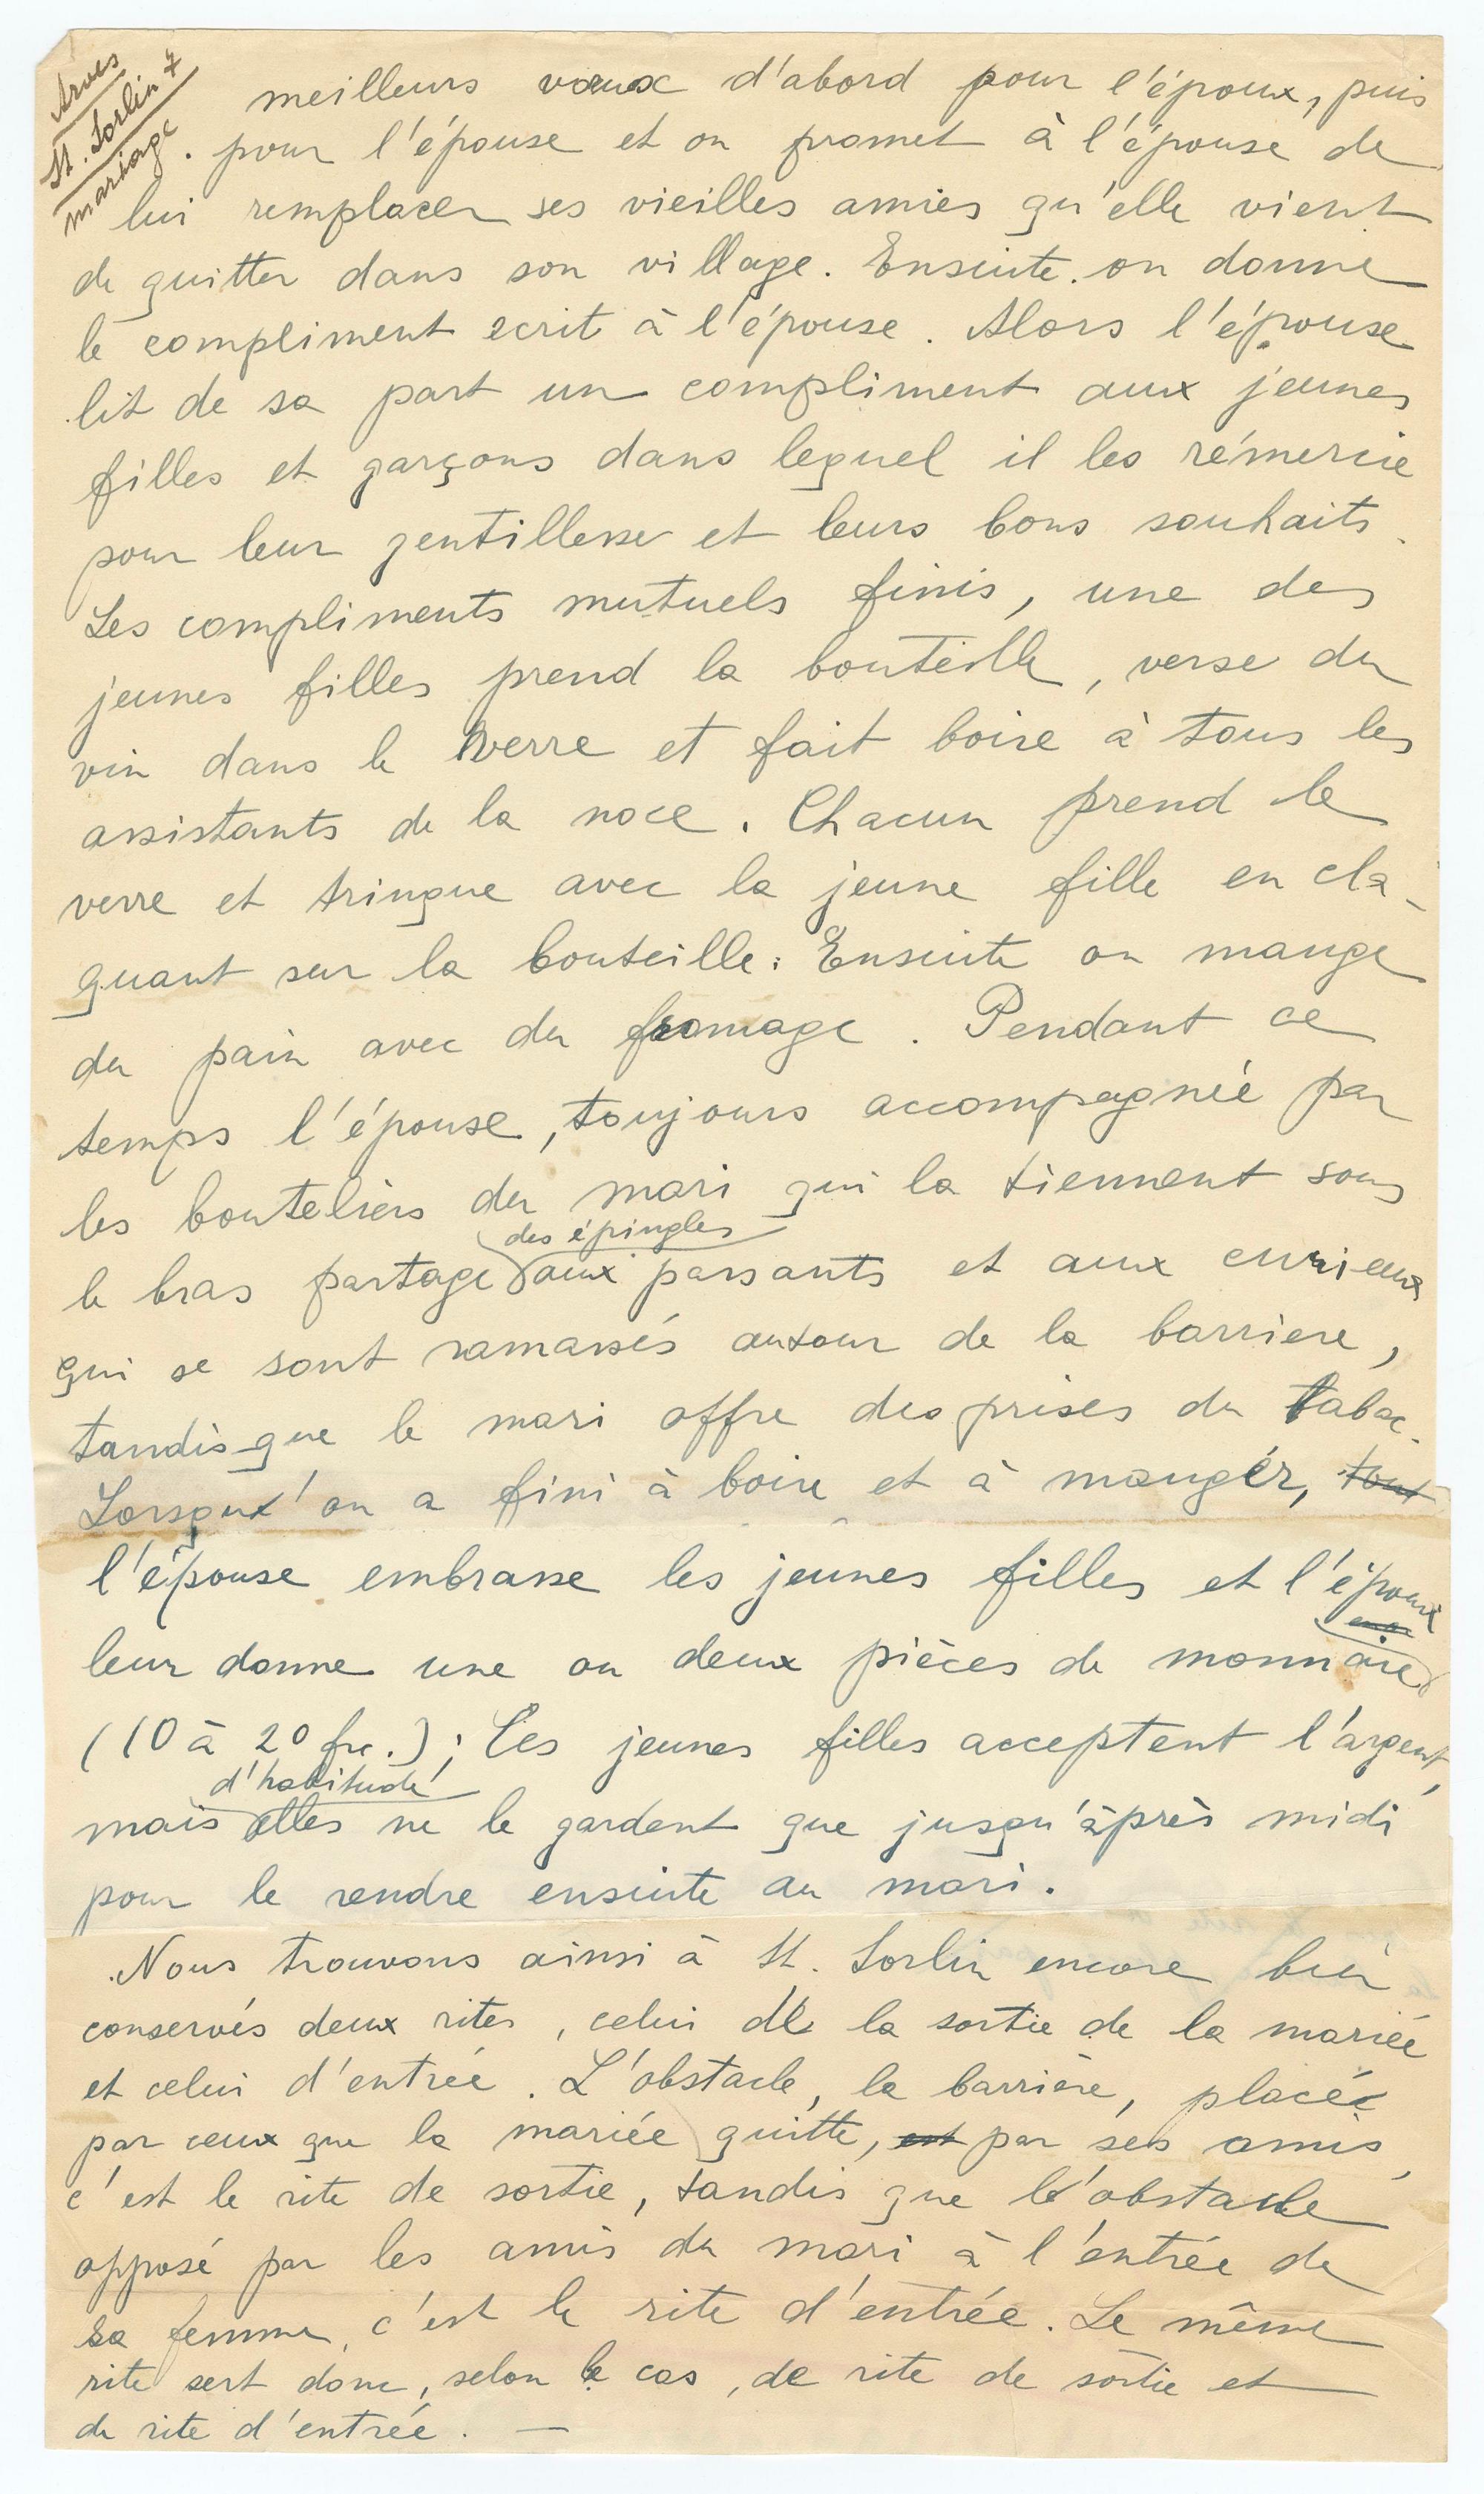 Arves
St. Sorlin 7
mariage
meilleurs vœux d'abord pour l'époux, puis
pour l'épouse et on promet à l'épouse de
lui remplacer ses vieilles amies qu'elle vient
de quitter dans son village. Ensuite on donne
le compliment ecrit à l'épouse. Alors l'épouse
lit de sa part un compliment aux jeunes
filles et garçons dans lequel il les rémercie
pour leur gentillesse et leurs bons souhaits.
Les compliments mutuels finis, une des
jeunes filles prend la bouteille, verse du
vin dans le verre et fait boire à tous les
assistants de la noce. Chacun prend le
verre et tringue avec la jeune fille en cla-
quant sur la bouteille. Ensuite on mange
du pain avec du fromage. Pendant ce
temps l'épouse, toujours accompagnée par
les bouteliers du mari qui la tiennent sous
des épingles
le bras partage aux passants et aux curieux
qui se sont ramassés autour de la barriere,
tandisque le mari offre des prises du tabac.
Lorsqu'on a fini à boire et à manger, tout
l'épouse embrasse les jeunes filles et l'époux
leur donne une ou deux pièces de monnaie
(10 à 20 frc.); Les jeunes filles acceptent l'argent,
d'habitude
mais elles ne le gardent que jusqu'àprès midi
pour le rendre ensuite au mari.
Nous trouvons ainsi à St. Sorlin encore bien
conservés deux rites, celui de la sortie de la mariée
et celui d'entrée. L'obstacle, la barrière, placée
par ceux que la mariée quitte, est par ses amis,
c'est le rite de sortie, tandis que l'obstacle
opposé par les amis du mari à l'entrée de
sa femme, c'est le rite d'entrée. Le même
rite sert donc, selon le cas, de rite de sortie et
de rite d'entrée. —